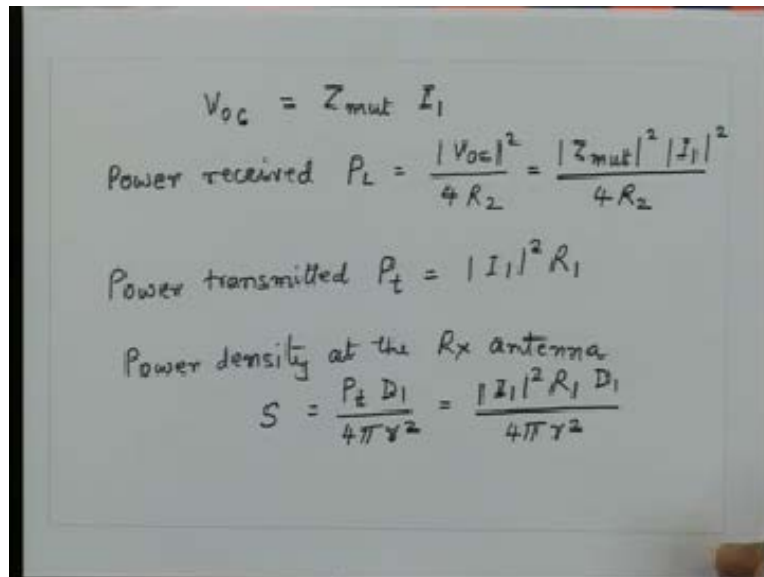 V_oc = Z_mut I_1
Power received P_L = |V_oc|^2 / 4 R_2 = |Z_mut|^2 |I_1|^2 / 4 R_2
Power transmitted P_t = |I_1|^2 R_1
Power density at the Rx antenna
S = P_t D_1 / 4π r^2 = |I_1|^2 R_1 D_1 / 4π r^2